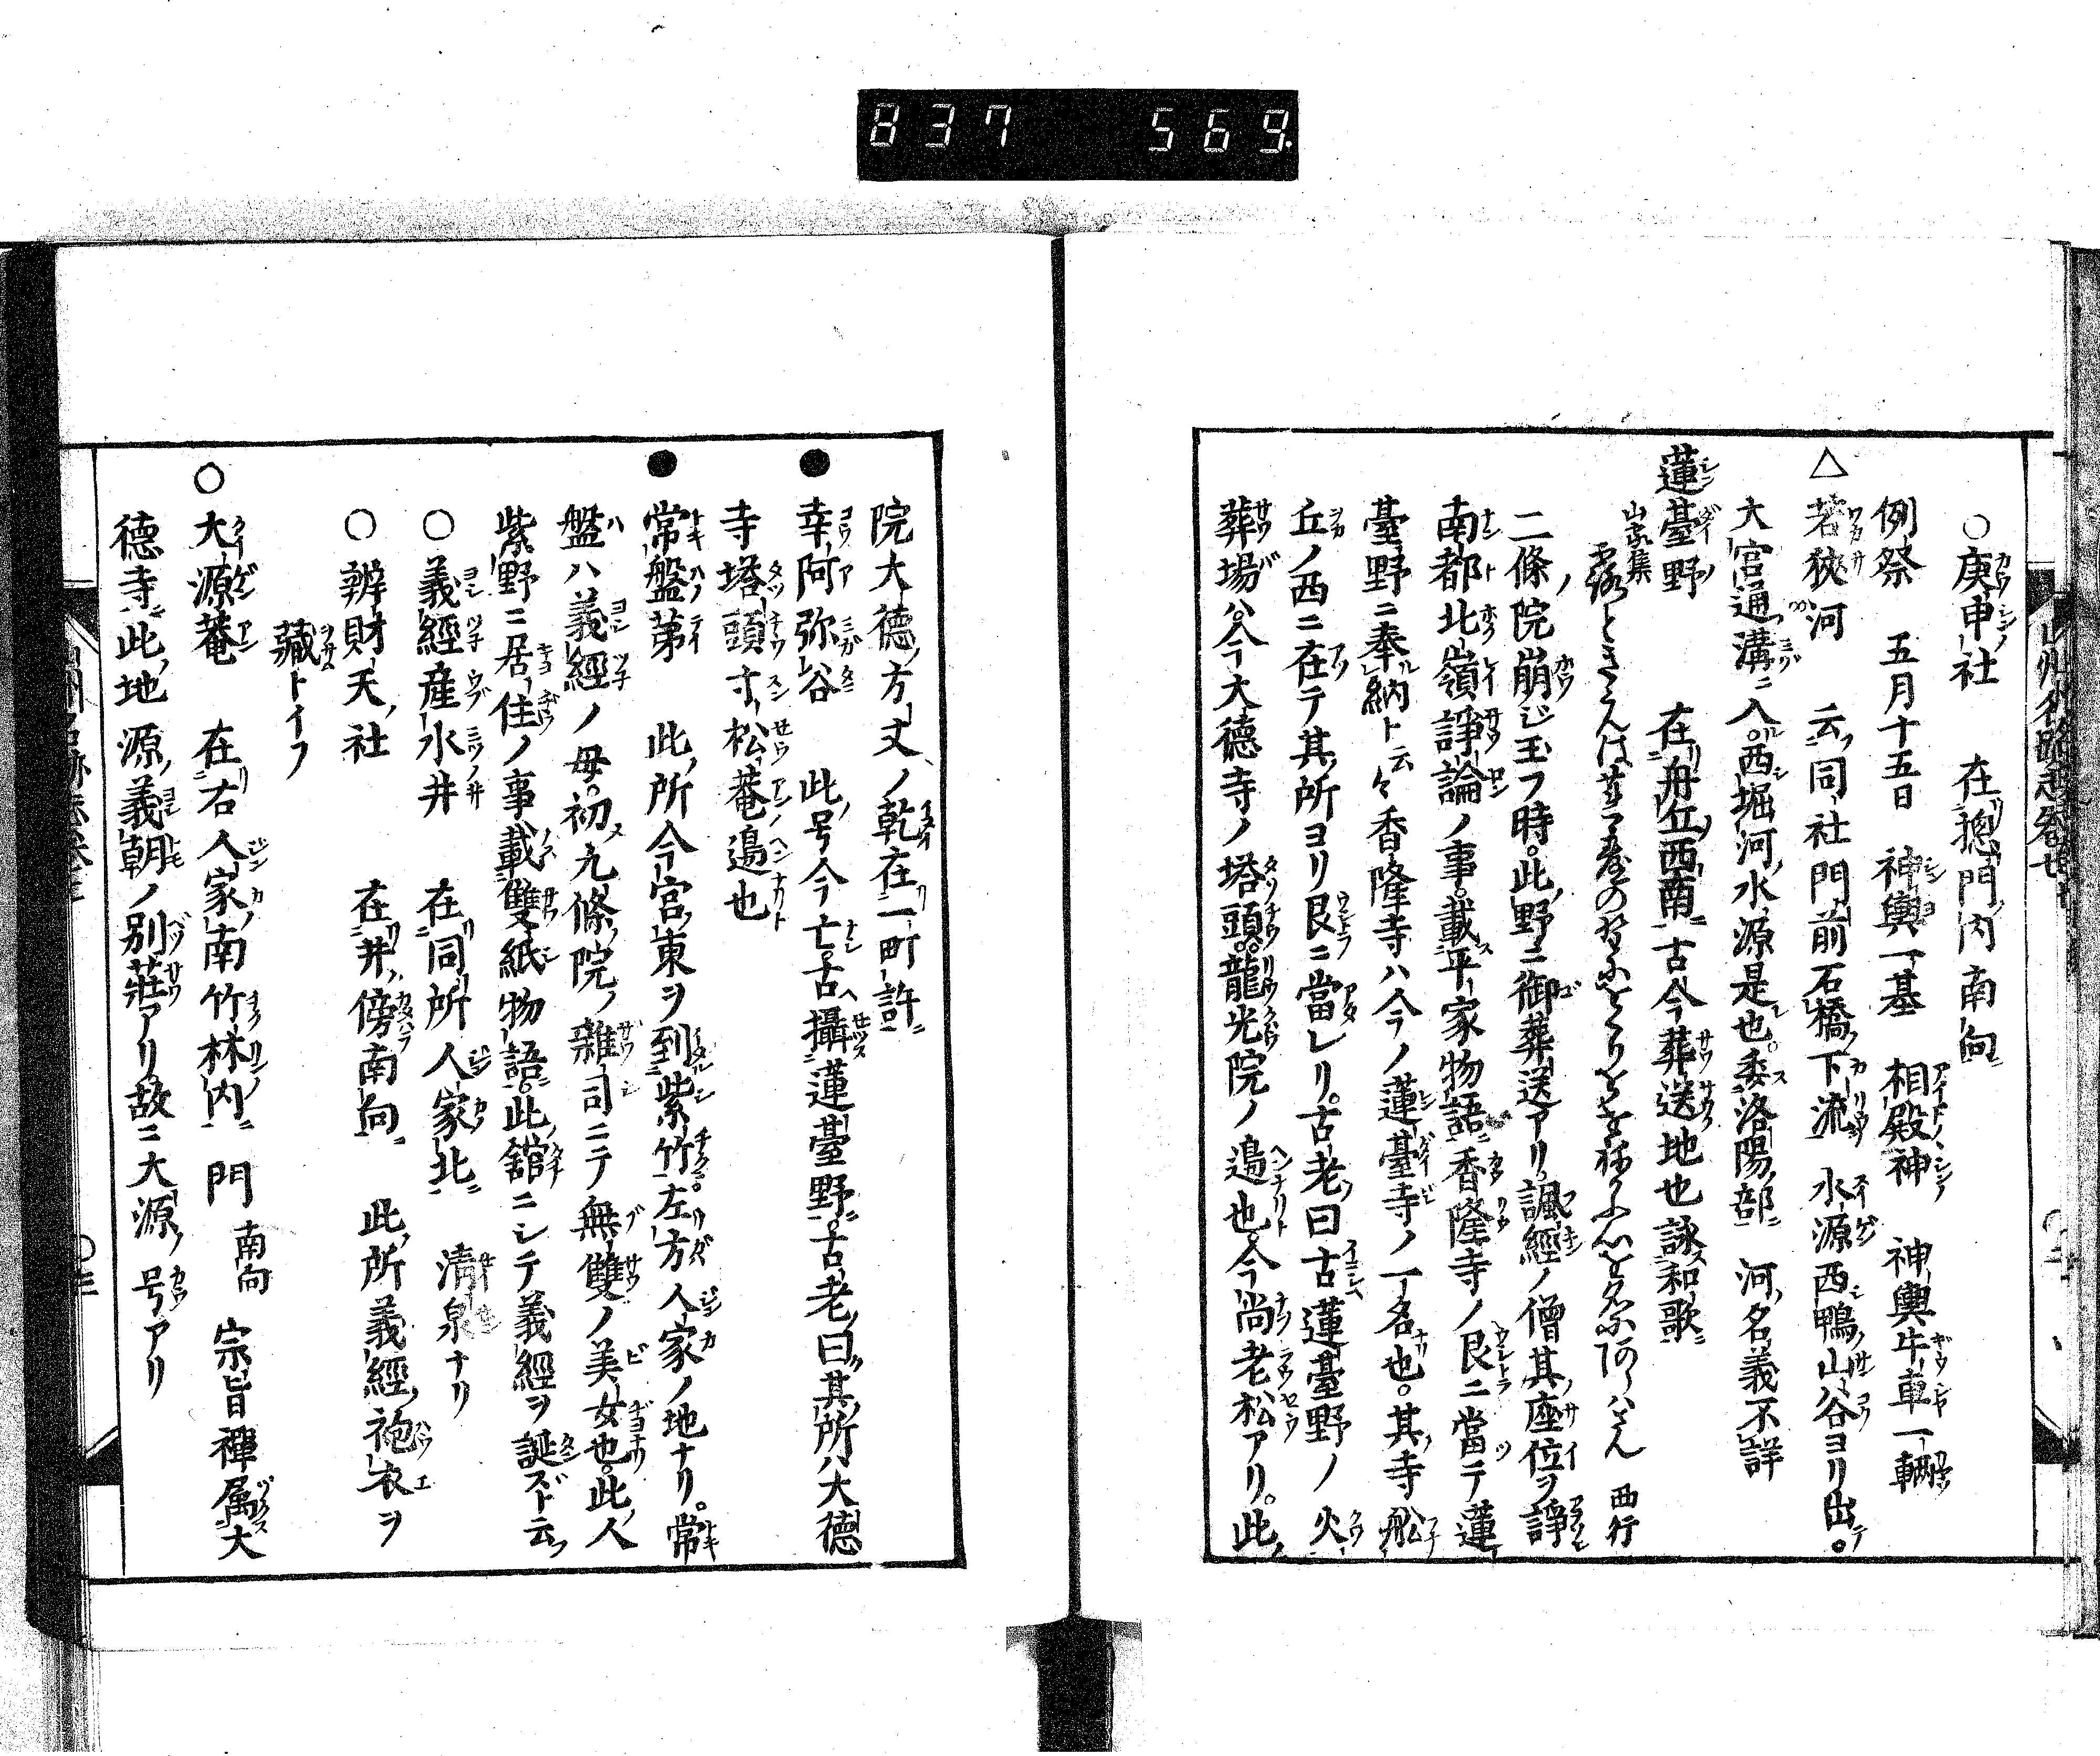 837 569.
○庚申社 在惣門内南向
例祭 五月十五日 神輿一基 相殿神 神輿牛車一輛
△若狹河 云同社門前石橋下流 水源西鴨山谷ヨリ出。
大宮通溝ニ入。西堀河水源是也。委洛陽部 河名義不詳
蓮臺野 在舟丘西南 古今葬送地也 詠和歌
山家集
西行
二條院崩ジ玉フ時。此野ニ御葬送アリ。諷經ノ僧其座位ヲ諍
南都北嶺諍論ノ事。載平家物語 香隆寺ノ艮ニ當テ蓮
臺野ニ奉納ト云々 香隆寺ハ今ノ蓮臺寺ノ一名也。其寺舩
丘ノ西ニ在テ其所ヨリ艮ニ當レリ。古老曰古蓮臺野ノ火
葬場ハ。今大德寺ノ塔頭。龍光院ノ邉也。今尚老松アリ。此
院大德方丈ノ乾在一町許
●幸阿弥谷 此号今亡。古攝蓮臺野。古老曰其所ハ大德
寺塔頭寸松菴邉也
●常盤第 此所今宮東ヲ到紫竹。左方人家ノ地ナリ。常
盤ハ義經ノ母。初九條院ノ雜司ニテ無雙ノ美女也。此人
紫野ニ居住ノ事載雙紙物語。此舘ニシテ義經ヲ誕ズト云
○義經産水井 在同所人家北 清泉ナリ
○辨財天社 在井傍南向 此所義經袍衣ヲ
藏トイフ
○大源菴 在右人家南竹林内 門 南向 宗旨禪属大
德寺 此地 源義朝ノ別莊アリ故ニ大源ノ号アリ